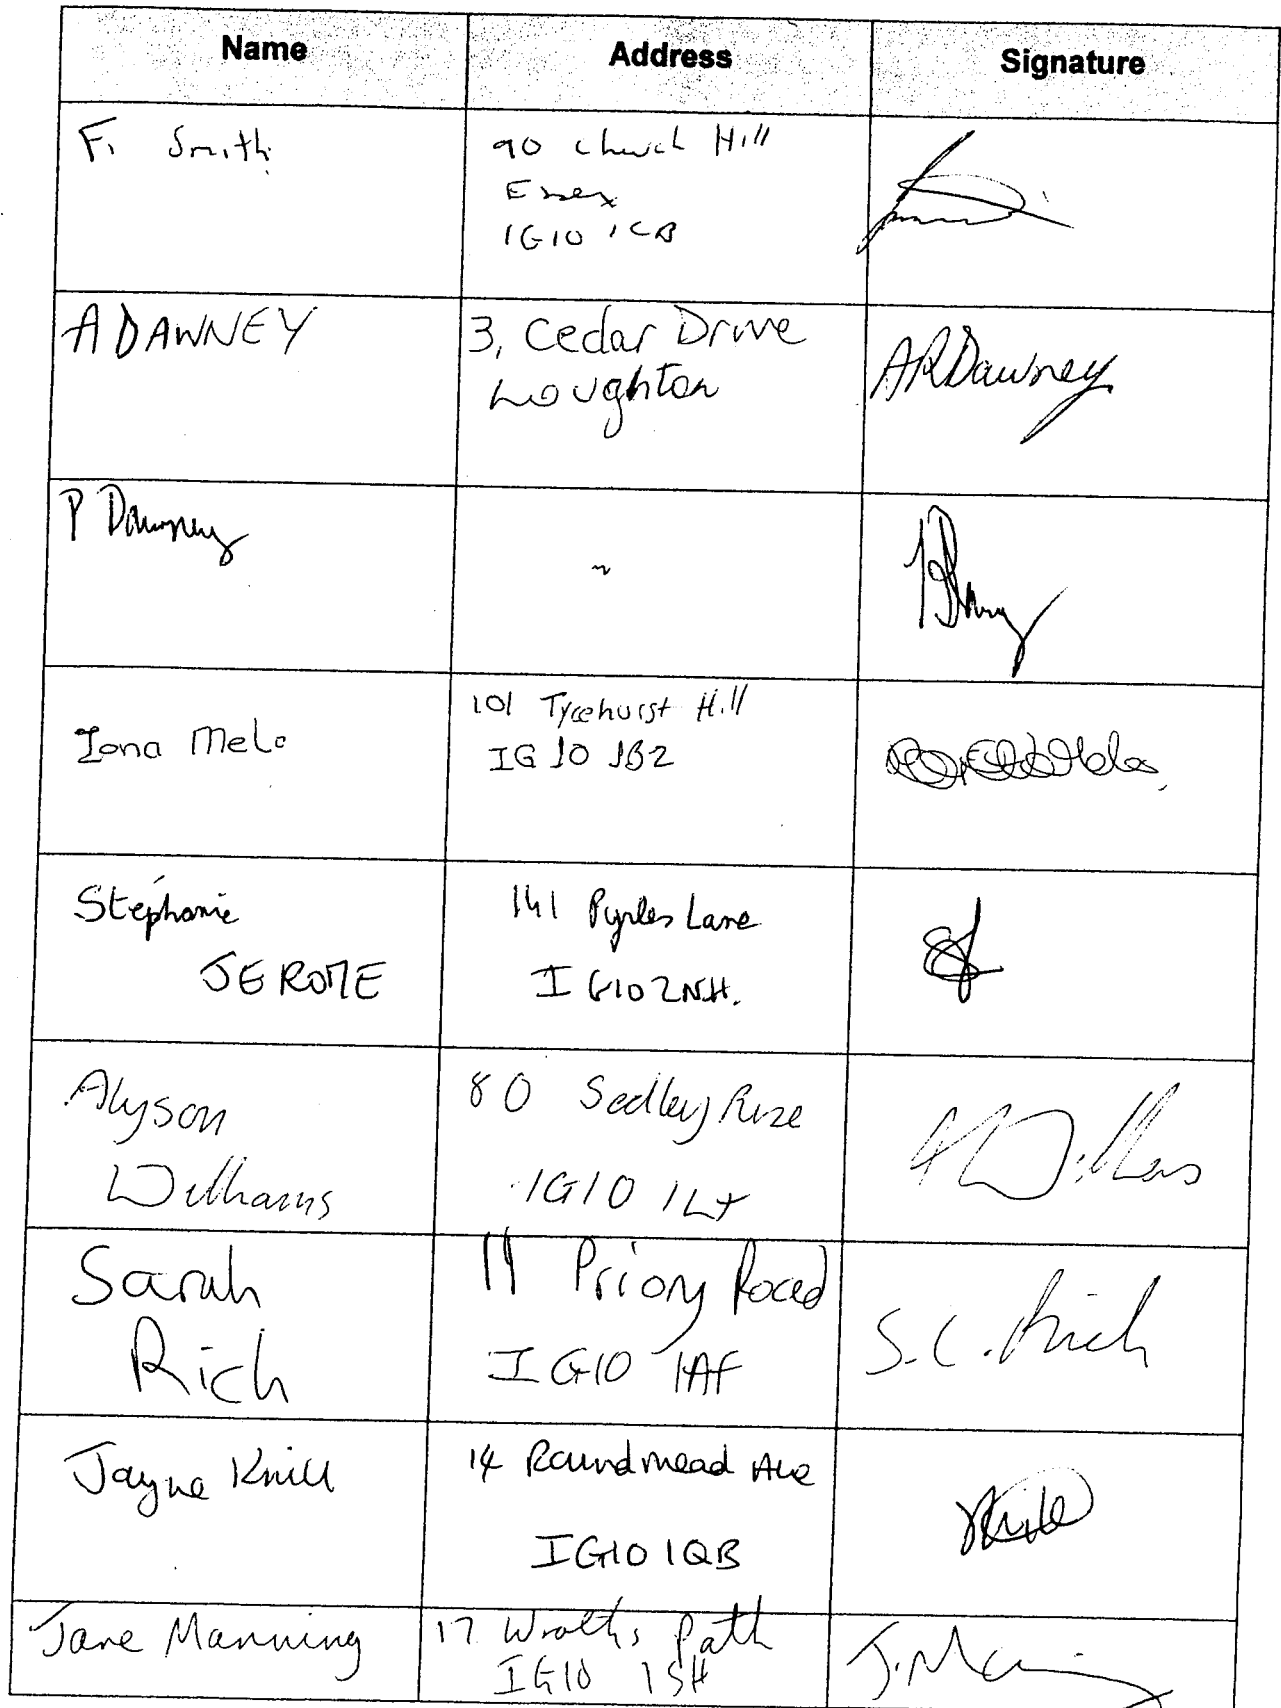 Name Address Signature
F. Smith
90 Church Hill
Essex
IG10 1CB
A DAWNEY
3, Cedar Drive
Loughton
ARDawney
P Dawney
~
Iona Melo
101 Tycehurst Hill
IG10 1BZ
Stephanie
JEROME
141 Pyrles Lane
IG10 2NH.
SJ
Alyson
Williams
80 Sedley Rise
IG10 1LT
A Williams
Sarah
Rich
11 Priory Road
IG10 1AF
S.C. Rich
Jayne Knill
14 Roundmead Ave
IG10 1QB
Jane Manning
17 Wroths Path
IG10 1SH
J. Manning